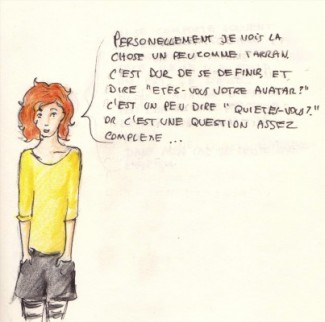 PERSONELLEMENT JE VOIS LA
CHOSE UN PEU COMME TARRAN
C'EST DUR DE SE DEFINIR ET
DIRE "ETES-VOUS VOTRE AVATAR?"
C'EST UN PEU DIRE "QUI ETES-VOUS?"
OR C'EST UNE QUESTION ASSEZ
COMPLEXE ...